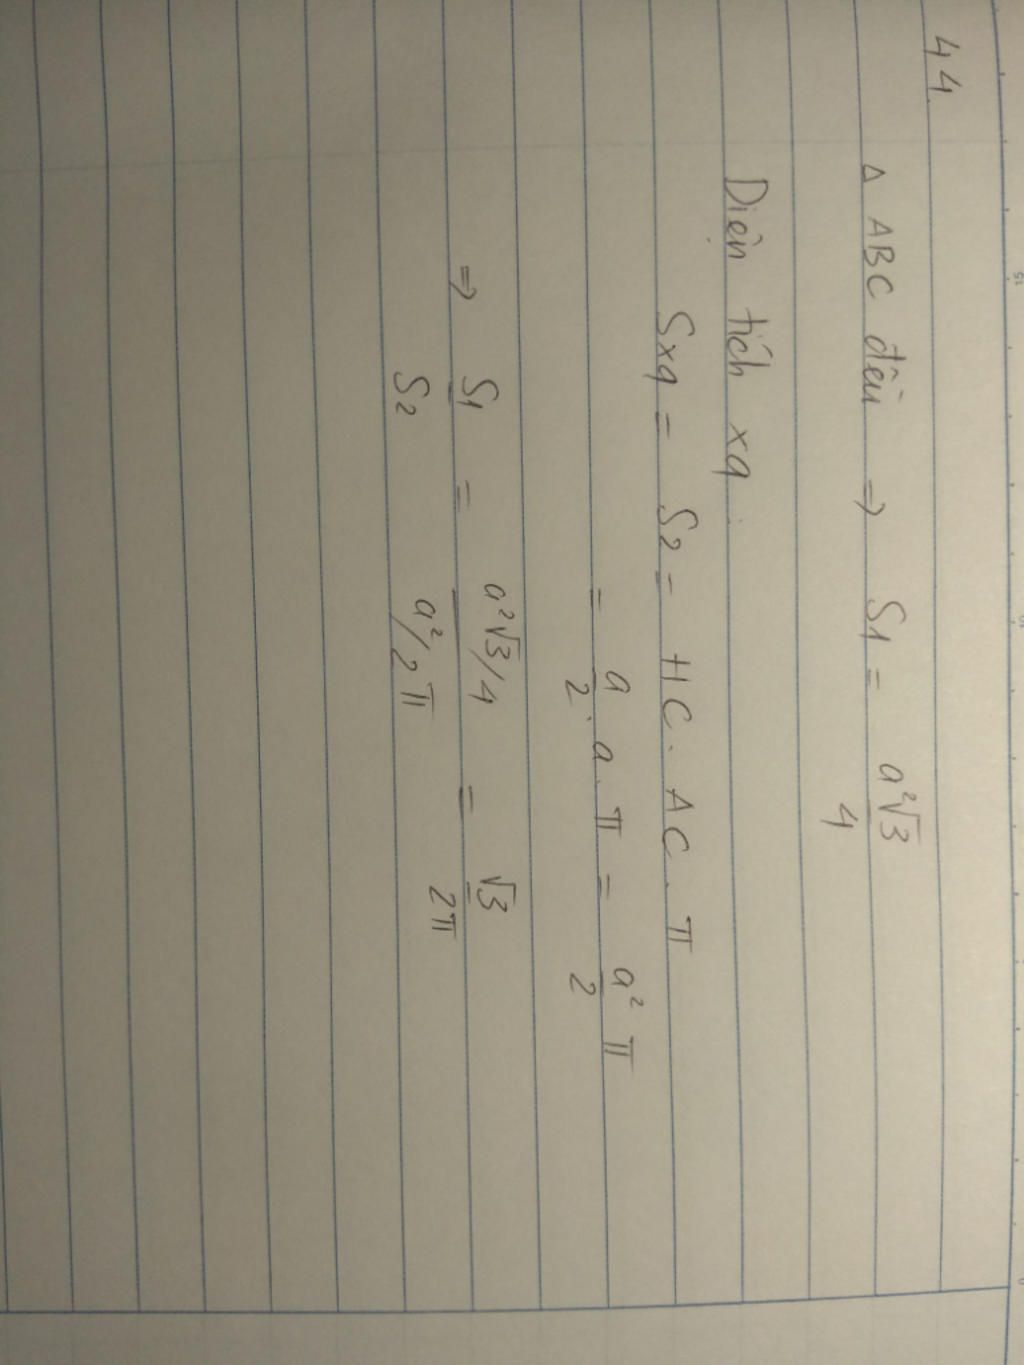 44
Δ ABC đều ⇒ S1 = a²√3/4
Diện tích xq.
Sxq = S2 = HC. AC. π
= a/2 . a. π = a²/2 π
⇒ S1/S2 = a²√3/4 / a²/2 π = √3/2π
15
10